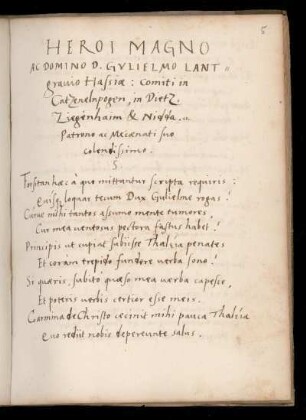 5
HEROI MAGNO
AC DOMINO D. GVLIELMO LANT=
gravio Hassiæ: Comiti in
Catzenelnpogen, in Dietz,
Ziegenhaim & Nidda,
Patrono ac Mecœnati suo
colendissimo.
S.
Forsitan hæc à quo mittantur scripta requiris:
Quisq; loquar tecum Dux Gulielme rogas?
Curve mihi tantos assumo mente tumores,
Cur mea ventosus pectora fastus habet?
Principis ut cupiat subiisse Thalia penates
Et coràm trepido fundere verba sono?
Si quæris, subitò quæso mea verba capesce,
Et poteris verbis certior esse meis.
Carmina de Christo cecinit mihi pauca Thalia
Quo rediit nobis depereunte salus.